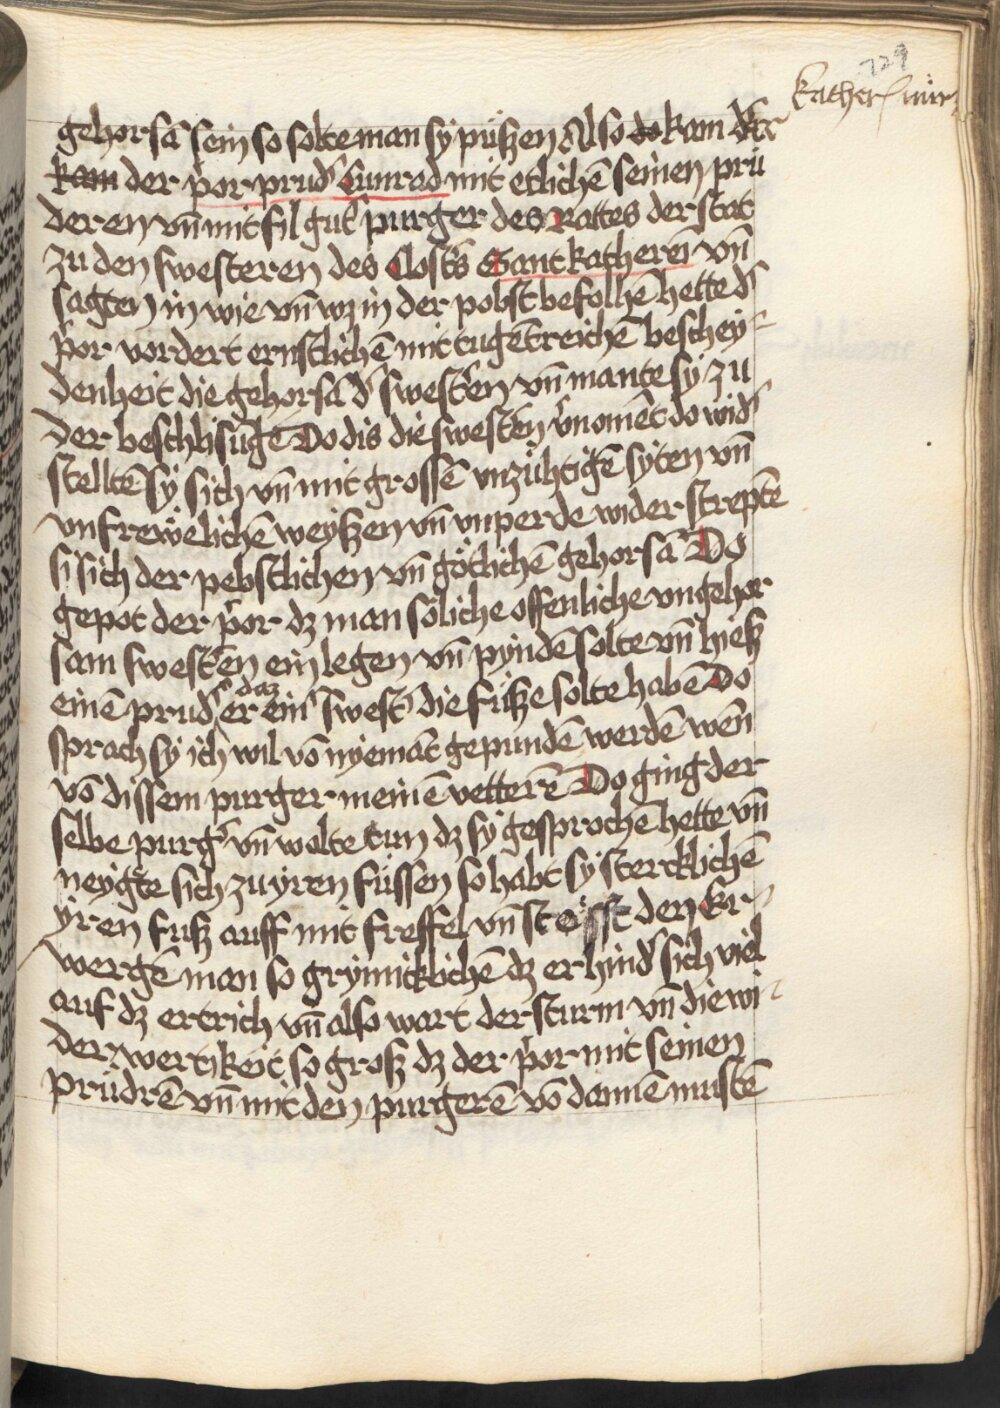 129
kather nür
gehorsā sein so solte man sy püßen Also do kam
kam der p̄or prud̕ Cunrad mit etlichē seinen prü
deren vn̄ mit fil gut̕ purger des Rattes der stat
zu den swesteren des Clost̕s Sant katherē vn̄
sagten in wie vn̄ wz in der pobst befolhē hette d̕
p̄or vordert ernstlichē mit tugētreichē beschey⸗
denheit die gehorsā d̕ swest̕en vn̄ mante sy zu
der beschlisūge Do dis die swest̕en v̕nomēt do wid̕
stelltē sy sich vn̄ mit grossē vnzühtigē syten vn̄
vnfrewelichē weyßen vn̄ vnperde wider streptē
si sich der pebstlichen vn̄ götlichē gehorsā Do
gepot der p̄or dz man söliche offenliche vngehor
sam swest̕en ein legen vn̄ pyndē solte vn̄ hieß
einē prud̕ daz er ein̕ swest̕ die füße solte habē Do
sprach sy ich wil vō nyemāt gepundē werdē wēn
vō dissem purger meinē vetterē Do ging der
selbe purg̕ vn̄ wolte tun dz sy gesprochē hette vn̄
neygte sich zu yren füssen so habt sy stercklichē
yren fuß auff mit freffel vn̄ stosst den Er⸗
wergē man so grymicklichē dz er hind̕ sich viel
auf dz ertrich vn̄ also wart der sturm vn̄ die wi⸗
derwertikeit so groß dz der p̄or mit seinen
prüdrē vn̄ mit den purgerē vō dannē mustē